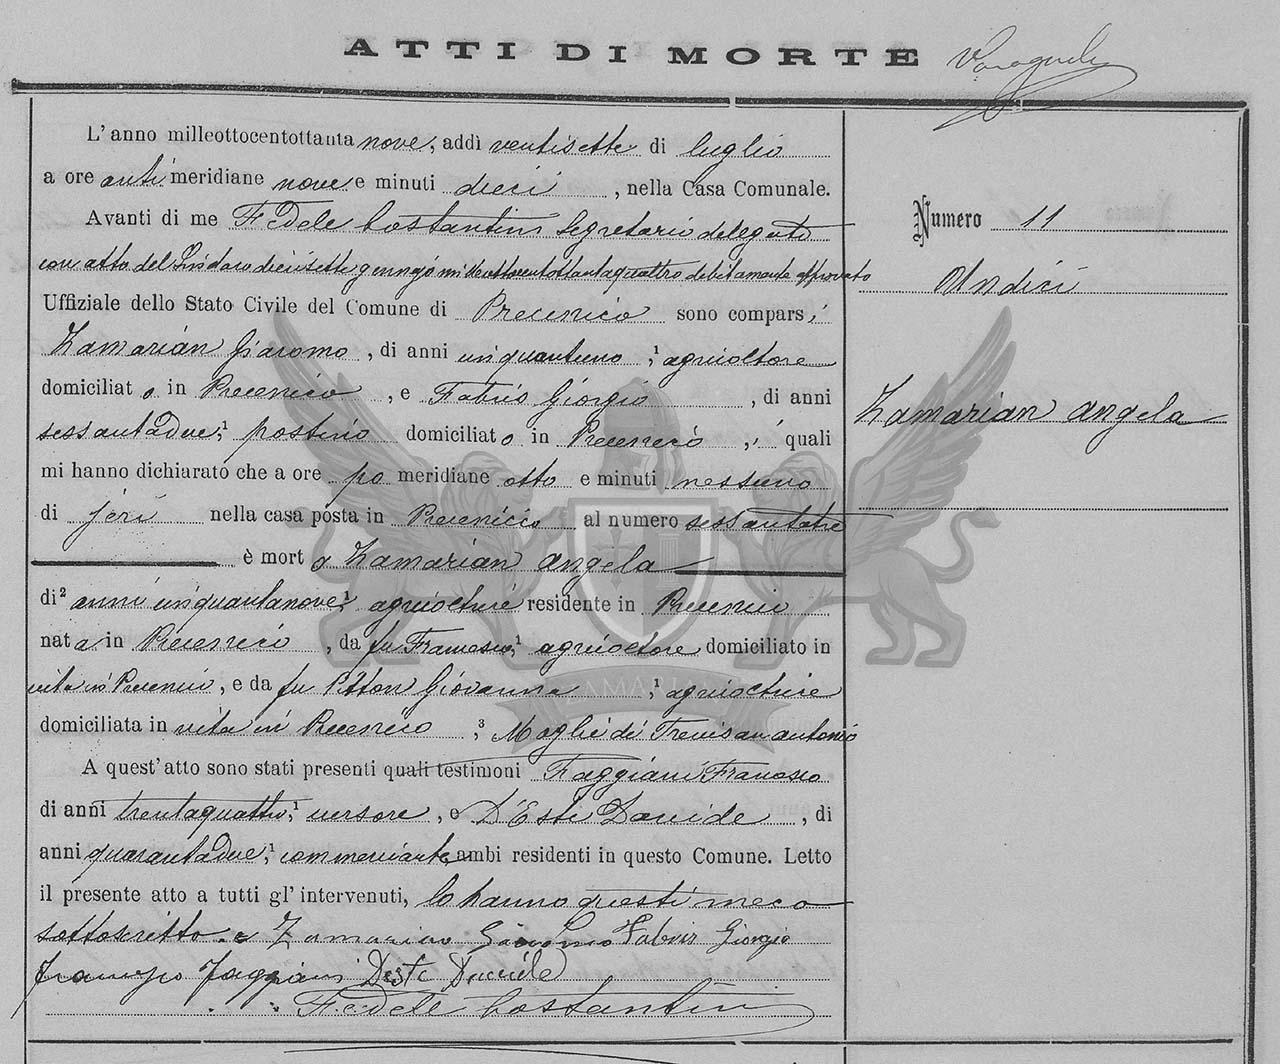 ATTI DI MORTE
L'anno milleottocentottanta nove, addì ventisette di luglio
a ore anti meridiane nove e minuti dieci, nella Casa Comunale.
Avanti di me Fedele Costantini Segretario delegato
con atto del Sindaco diecisette gennajo milleottocentottantaquattro debitamente approvato
Uffiziale dello Stato Civile del Comune di Precenico sono comparsi
Zamarian Giacomo, di anni cinquantuno,¹ agricoltore
domiciliato in Precenico, e Fabris Giorgio, di anni
sessantadue,¹ postino domiciliato in Precenico, i quali
mi hanno dichiarato che a ore po meridiane otto e minuti nessuno
di jeri nella casa posta in Precenicco al numero sessantatre
è morta Zamarian Angela
di² anni cinquantanove,¹ agricoltrice residente in Precenico
nata in Precenico, da fu Francesco,¹ agricoltore domiciliato in
vita in Precenico, e da fu Pitton Giovanna,¹ agricoltrice
domiciliata in vita in Precenico,³ Moglie di Trevisan Antonio
A quest'atto sono stati presenti quali testimoni Faggiani Francesco
di anni trentaquattro,¹ cursore, e D'Este Davide, di
anni quarantadue,¹ commerciante, ambi residenti in questo Comune. Letto
il presente atto a tutti gl'intervenuti, lo hanno questi meco
sottoscritto. Zamarian Giacomo Fabris Giorgio
Francesco Faggiani Deste Davide
Fedele Costantini
Numero 11
Undici
Zamarian Angela
ZAMARIAN